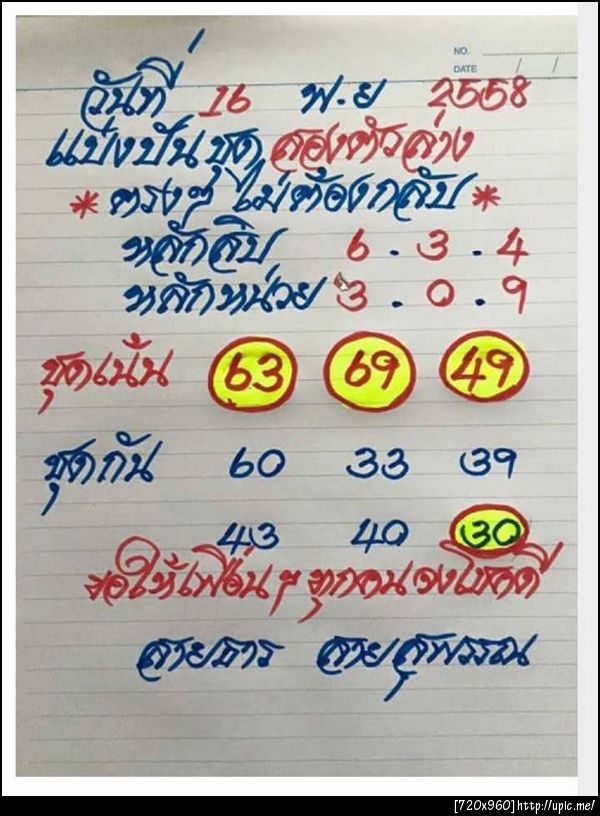 NO.
DATE / /
วันที่ 16 พ.ย 2558
แบ่งปันชุด สองตัวล่าง
* ตรงๆ ไม่ต้องกลับ *
หลักสิบ 6 . 3 . 4
หลักหน่วย 3 . 0 . 9
ชุดเน้น 63 69 49
ชุดกัน 60 33 39
43 40 30
ขอให้เพื่อนๆ ทุกคนจงโชคดี
สายธาร สายสุพรรณ
[720x960] http://upic.me/